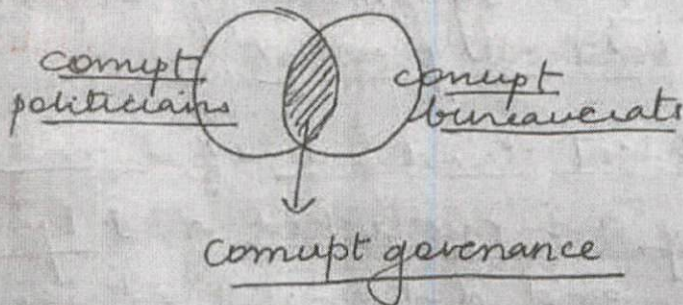 corrupt
politicians
corrupt
bureaucrats
corrupt governance